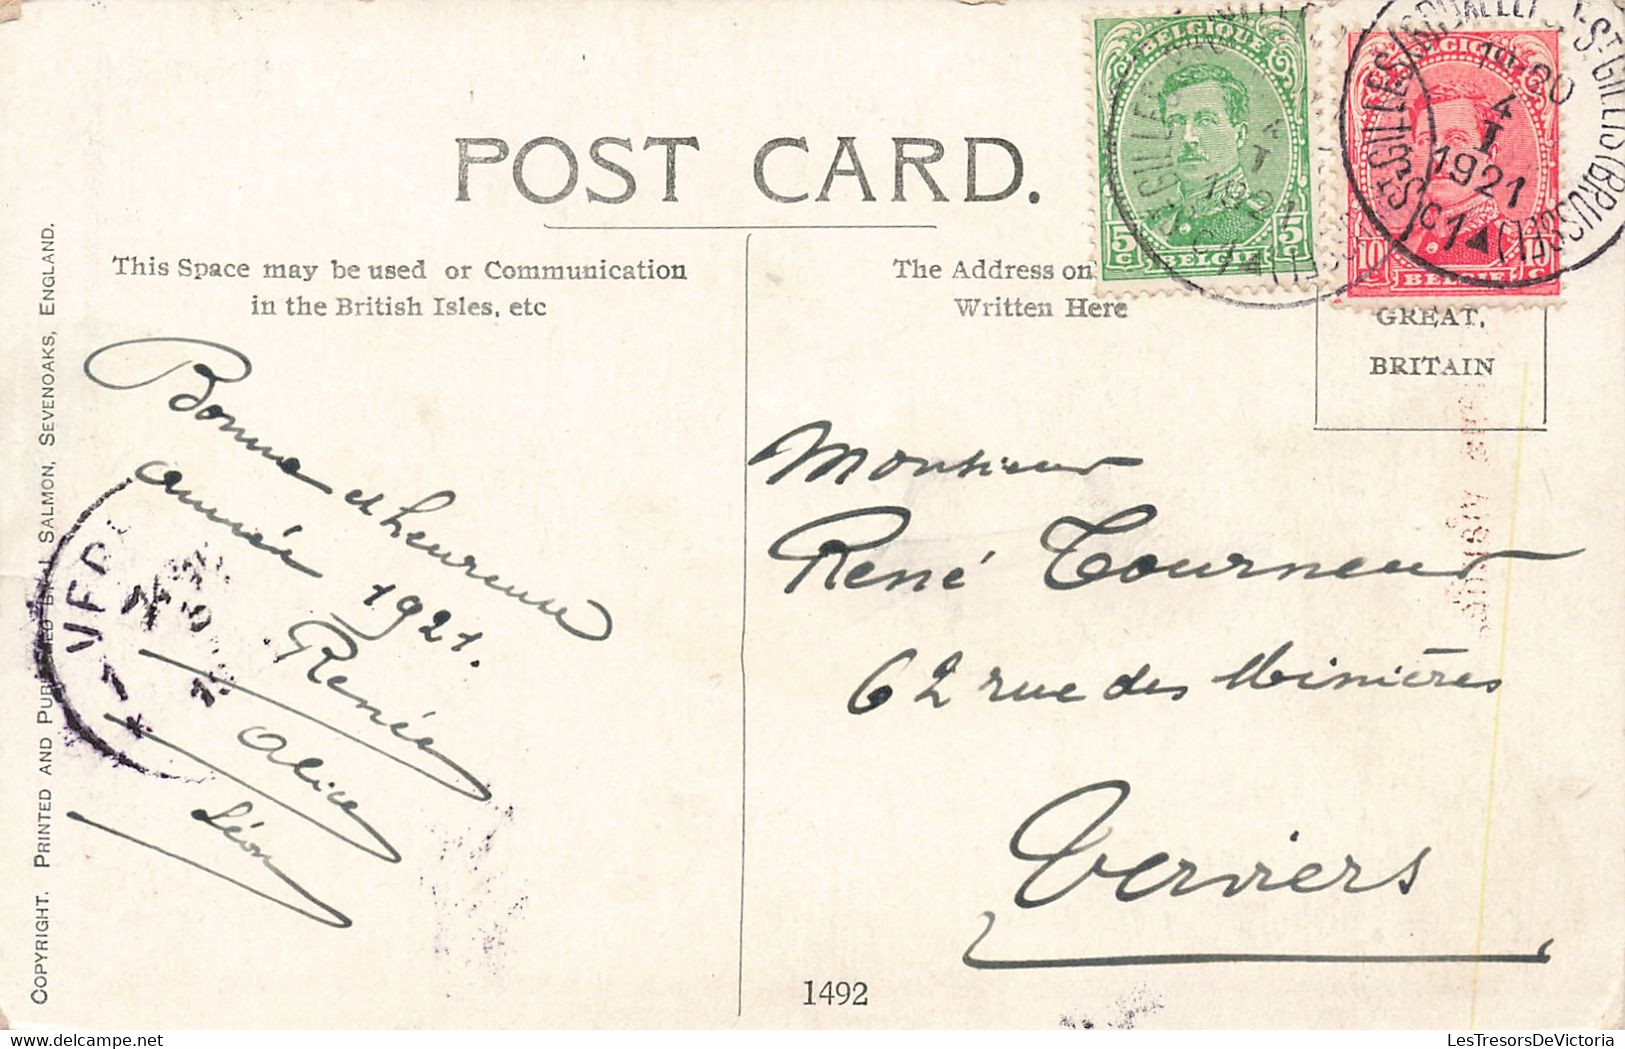 POST CARD.
This Space may be used or Communication
in the British Isles, etc
The Address on
Written Here
GREAT.
BRITAIN
BELGIQUE
5 5
C C
BELGIE
10 10
C C
BELGIË
1921
ST GILLIS (BRUSSEL)
4
I
1921
C1
Bonne et heureuse
année 1921.
René
Alice
Léon
Monsieur
René Tourneur
62 rue des Minières
Verviers
1492
COPYRIGHT. PRINTED AND PUBLISHED BY J. SALMON, SEVENOAKS, ENGLAND.
LesTresorsDeVictoria
delcampe.net